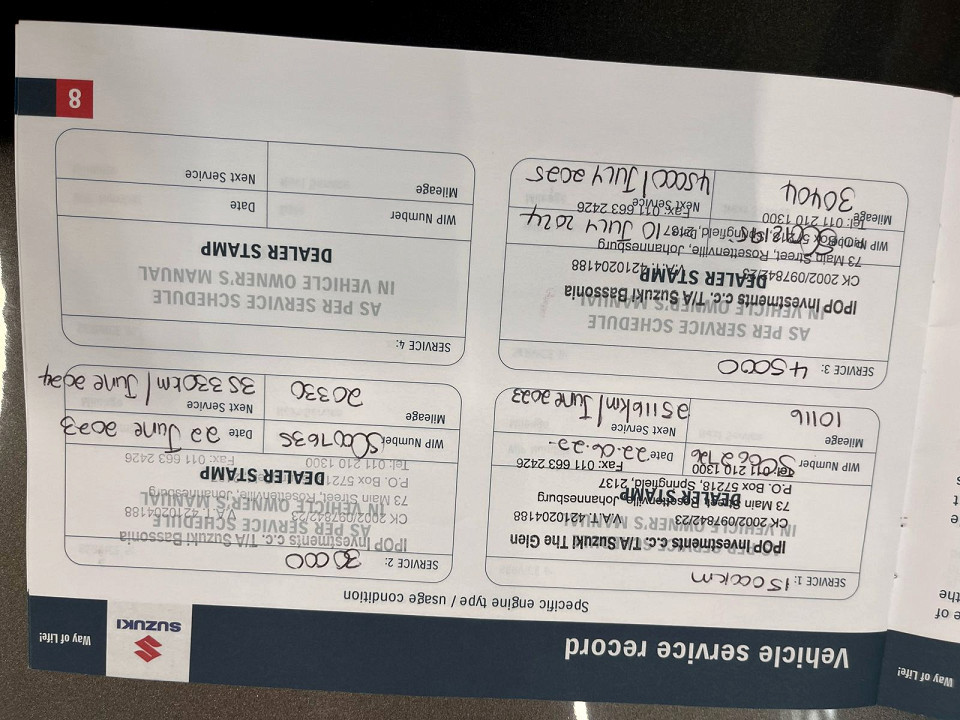 Vehicle service record
SUZUKI
Way of Life!
Specific engine type / usage condition
SERVICE 1: 15000km
IPOP Investments c.c. T/A Suzuki The Glen
CK 2002/097842/23 V.A.T. 4210204188
73 Main Street, Rosettenville, Johannesburg
DEALER STAMP
P.O. Box 57218, Springfield, 2137
Tel: 011 210 1300 Fax: 011 663 2426
WIP Number
Date 22-06-22-
Mileage
10116
Next Service
25116km/June 2023
SERVICE 2: 30000
IPOP Investments c.c. T/A Suzuki Bassonia
AS PER SERVICE SCHEDULE
CK 2002/097842/23 V.A.T. 4210204188
IN VEHICLE OWNER'S MANUAL
73 Main Street, Rosettenville, Johannesburg
DEALER STAMP
Tel: 011 210 1300 Fax: 011 663 2426
WIP Number
Date 22 June 2023
Mileage
20330
Next Service
35330km/June 2024
SERVICE 3: 45000
AS PER SERVICE SCHEDULE
IN VEHICLE OWNER'S MANUAL
IPOP Investments c.c. T/A Suzuki Bassonia
DEALER STAMP
CK 2002/097842/23 V.A.T. 4210204188
73 Main Street, Rosettenville, Johannesburg
WIP Number
10 July 2024
Tel: 011 210 1300 Fax: 011 663 2426
Mileage
30404
Next Service
45000/July 2025
SERVICE 4:
AS PER SERVICE SCHEDULE
IN VEHICLE OWNER'S MANUAL
DEALER STAMP
WIP Number
Date
Mileage
Next Service
8
Way of Life!